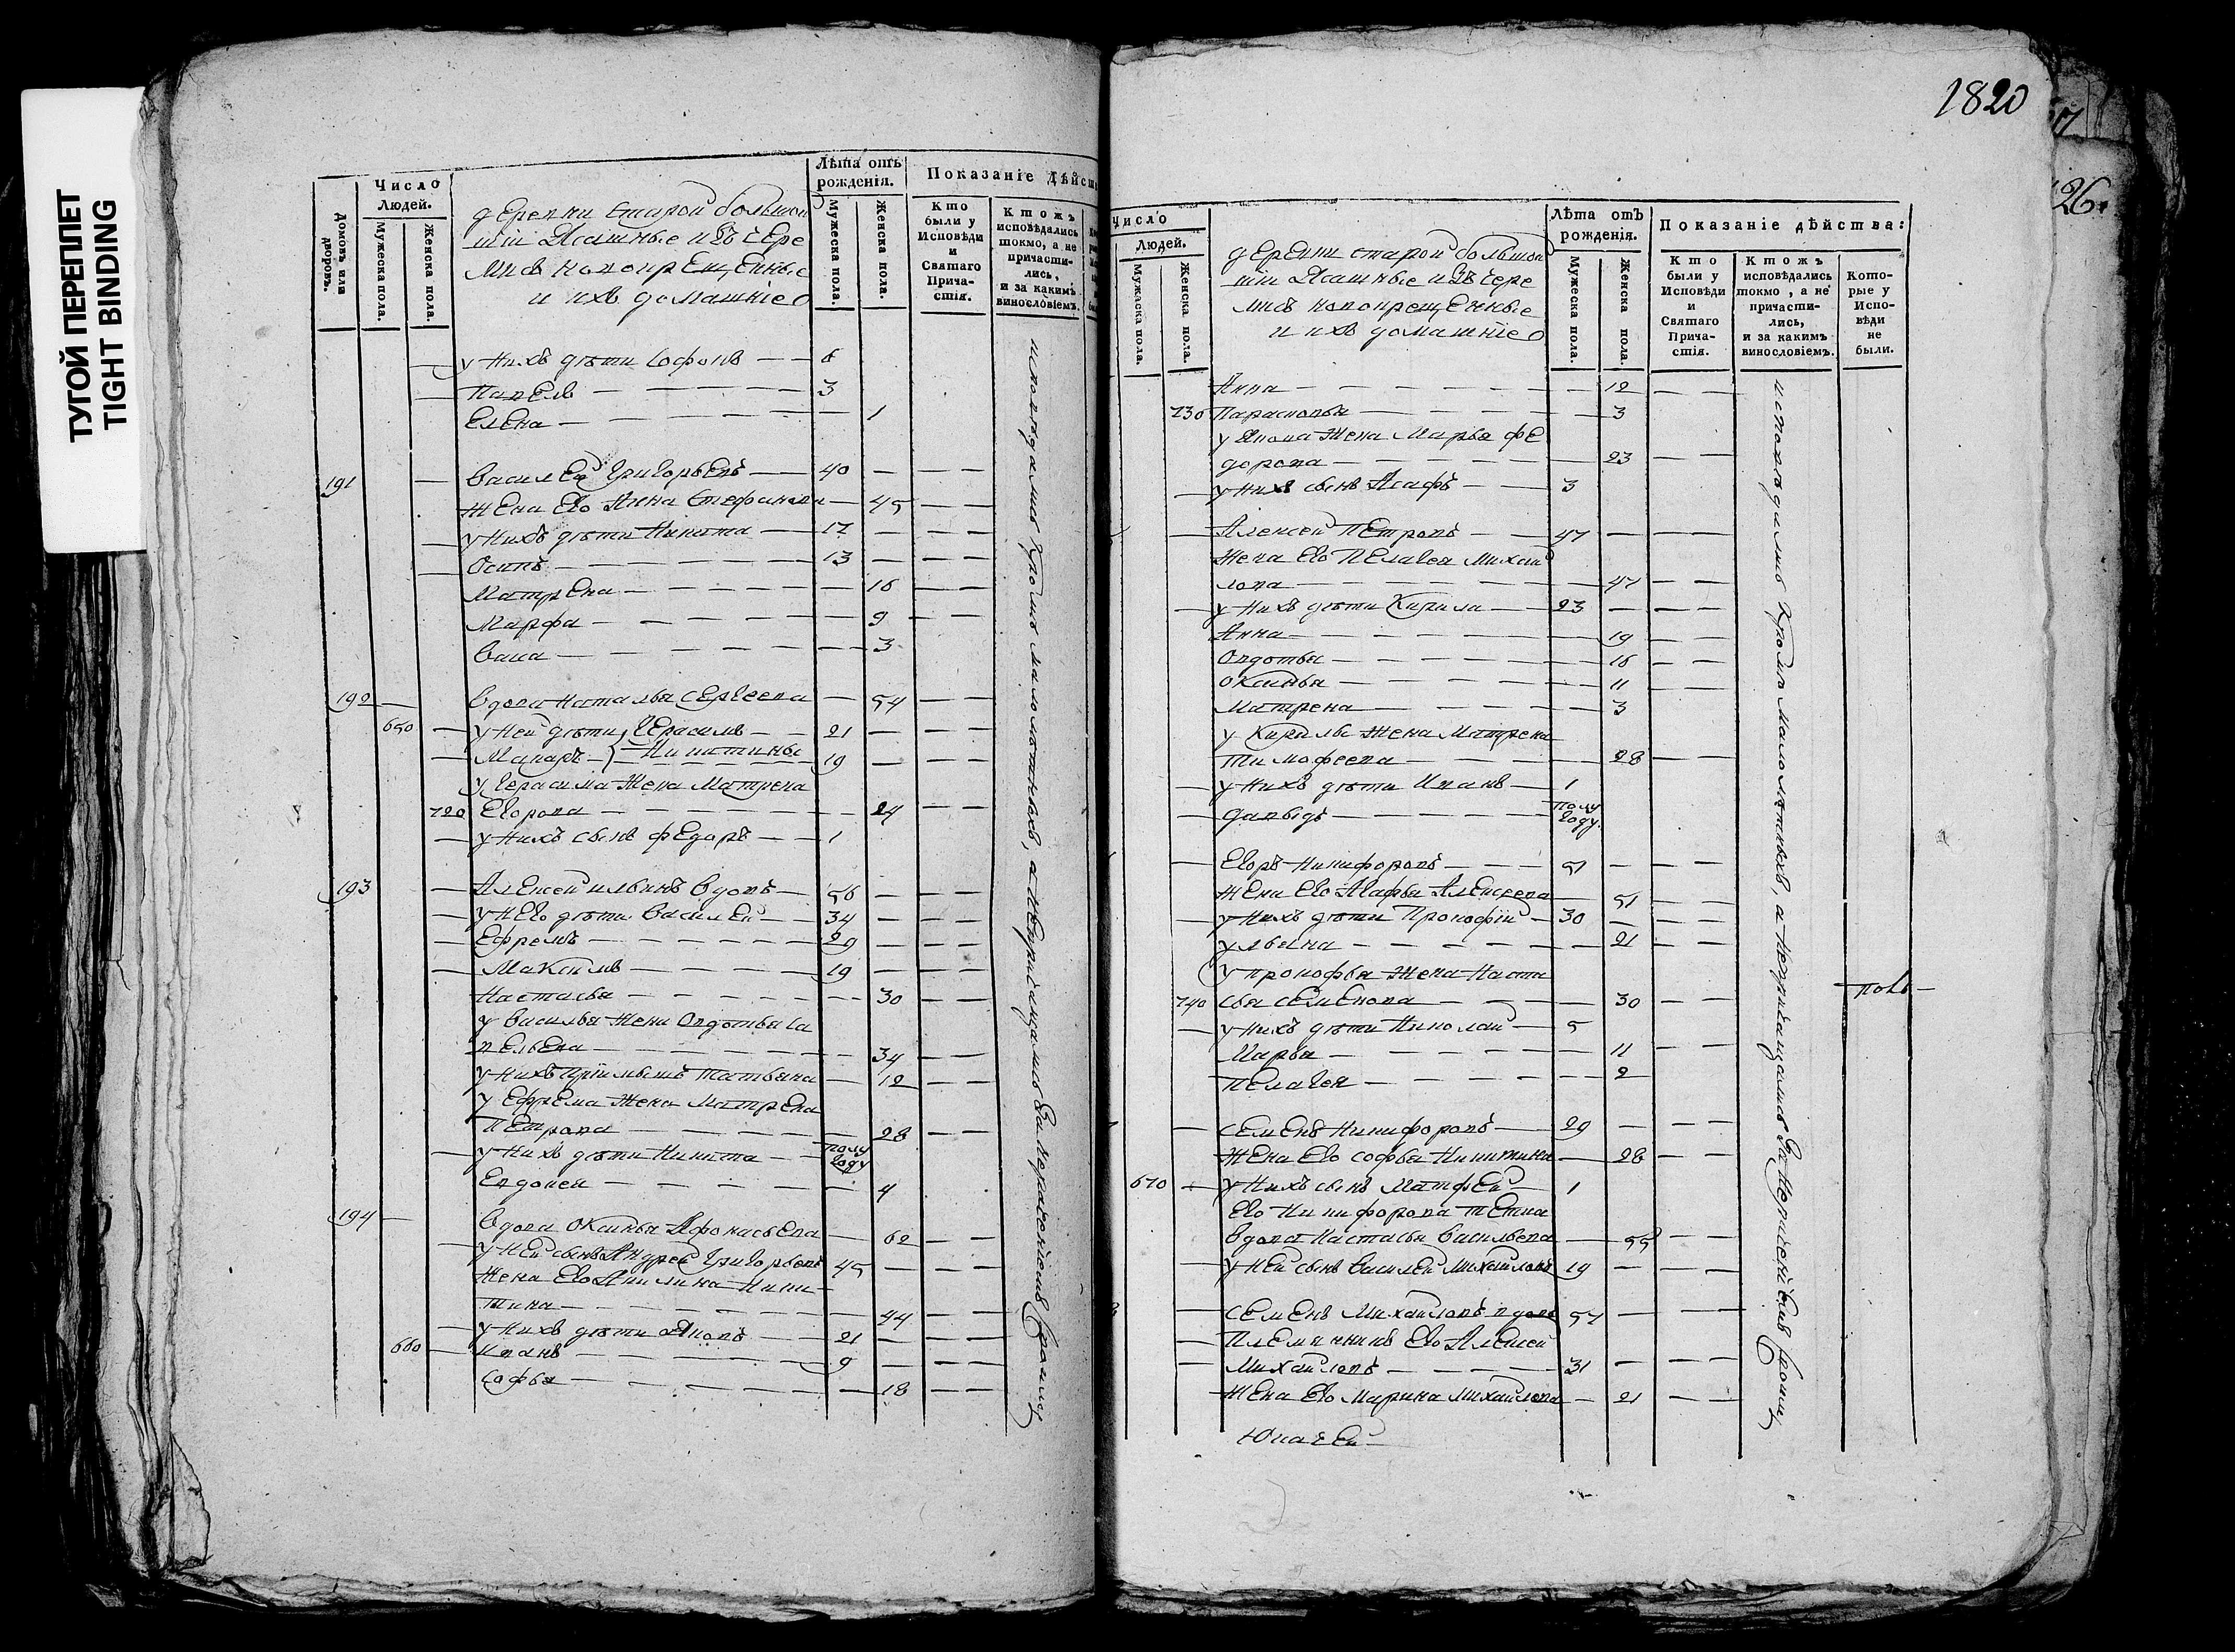 ТУГОЙ ПЕРЕПЛЕТ
TIGHT BINDING
Домовъ или дворовъ.
Число Людей.
Мужеска пола.
Женска пола.
деревни старой
ясашные изъ чере
мисъ новокрещенные
и ихъ домашніе
Лѣта отъ рожденія.
Мужеска пола.
Женска пола.
Показаніе
Кто были у Исповѣди и Святаго Причастія.
Ктожъ исповѣдались токмо, а не причастились, и за какимъ винословіемъ.
у нихъ дѣти Софонъ — 6
Павелъ — 3
Елена — 1
191 Василей Григорьевъ — 40
жена ево Анна Стефанова — 45
у нихъ дѣти Никита — 17
Осипъ — 13
Матрена — 16
Марфа — 9
Васа — 3
192 вдова Наталья Сергеева — 54
650 у ней дѣти Герасимъ — 21
Макаръ — Никитины — 19
у Герасима жена Матрена
720 Егорова — 24
у нихъ сынъ Федоръ — 1
193 Алексей Ильинъ вдовъ — 56
у него дѣти Василей — 34
Ефремъ — 29
Максимъ — 19
Настасья — 30
у Василья жена Овдотья Са
вельева — 34
у нихъ приімышъ Татьяна — 12
у Ефрема жена Матрена
Петрова — 28
у нихъ дѣти Никита — полу году
Евдокея — 4
194 вдова Оксинья Афонасьева — 62
у ней сынъ Андрей Григорьевъ 45
жена ево Акилина Ники
тина — 44
у нихъ дѣти Яковъ — 21
660 Иванъ — 9
Софья — 18
исповѣдались кромѣ малолѣтныхъ, а непричащались
1820
26.
Число Людей.
Мужеска пола.
Женска пола.
деревни старой
ясашные изъ чере
мисъ новокрещенные
и ихъ домашніе
Лѣта отъ рожденія.
Мужеска пола.
Женска пола.
Показаніе дѣйства:
Кто были у Исповѣди и Святаго Причастія.
Ктожъ исповѣдались токмо, а не причастились, и за какимъ винословіемъ.
Которые у Исповѣди не были.
Анна — 12
730 Парасковья — 3
у Якова жена Марья Фе
дорова — 23
у нихъ сынъ Асафъ — 3
Алексей Петровъ — 47
жена ево Пелагея Михай
лова — 47
у нихъ дѣти Кирила — 23
Анна — 19
Овдотья — 16
Оксинья — 11
Матрена — 3
у Кирилы жена Матрена
Тимофеева — 28
у нихъ дѣти Иванъ — 1
Давыдъ — полу году.
Егоръ Никифоровъ — 51
жена ево Агафья Алексеева — 51
у нихъ дѣти Прокофій — 30
Ульяна — 21
у Прокофья жена Наста
740 сья Семенова — 30
у нихъ дѣти Николай — 5
Марья — 11
Пелагея — 2
Семенъ Никифоровъ — 29
жена ево Софья Никитина — 28
670 у нихъ сынъ Матфей — 1
ево Никифорова тетка
вдова Настасья Васильева — 55
у ней сынъ Василей Михайловъ 19
Семенъ Михайловъ вдовъ 57
племянникъ ево Алексей
Михайловъ — 31
жена ево Марина Михайлова — 21
исповѣдались кромѣ малолѣтныхъ, а непричащались